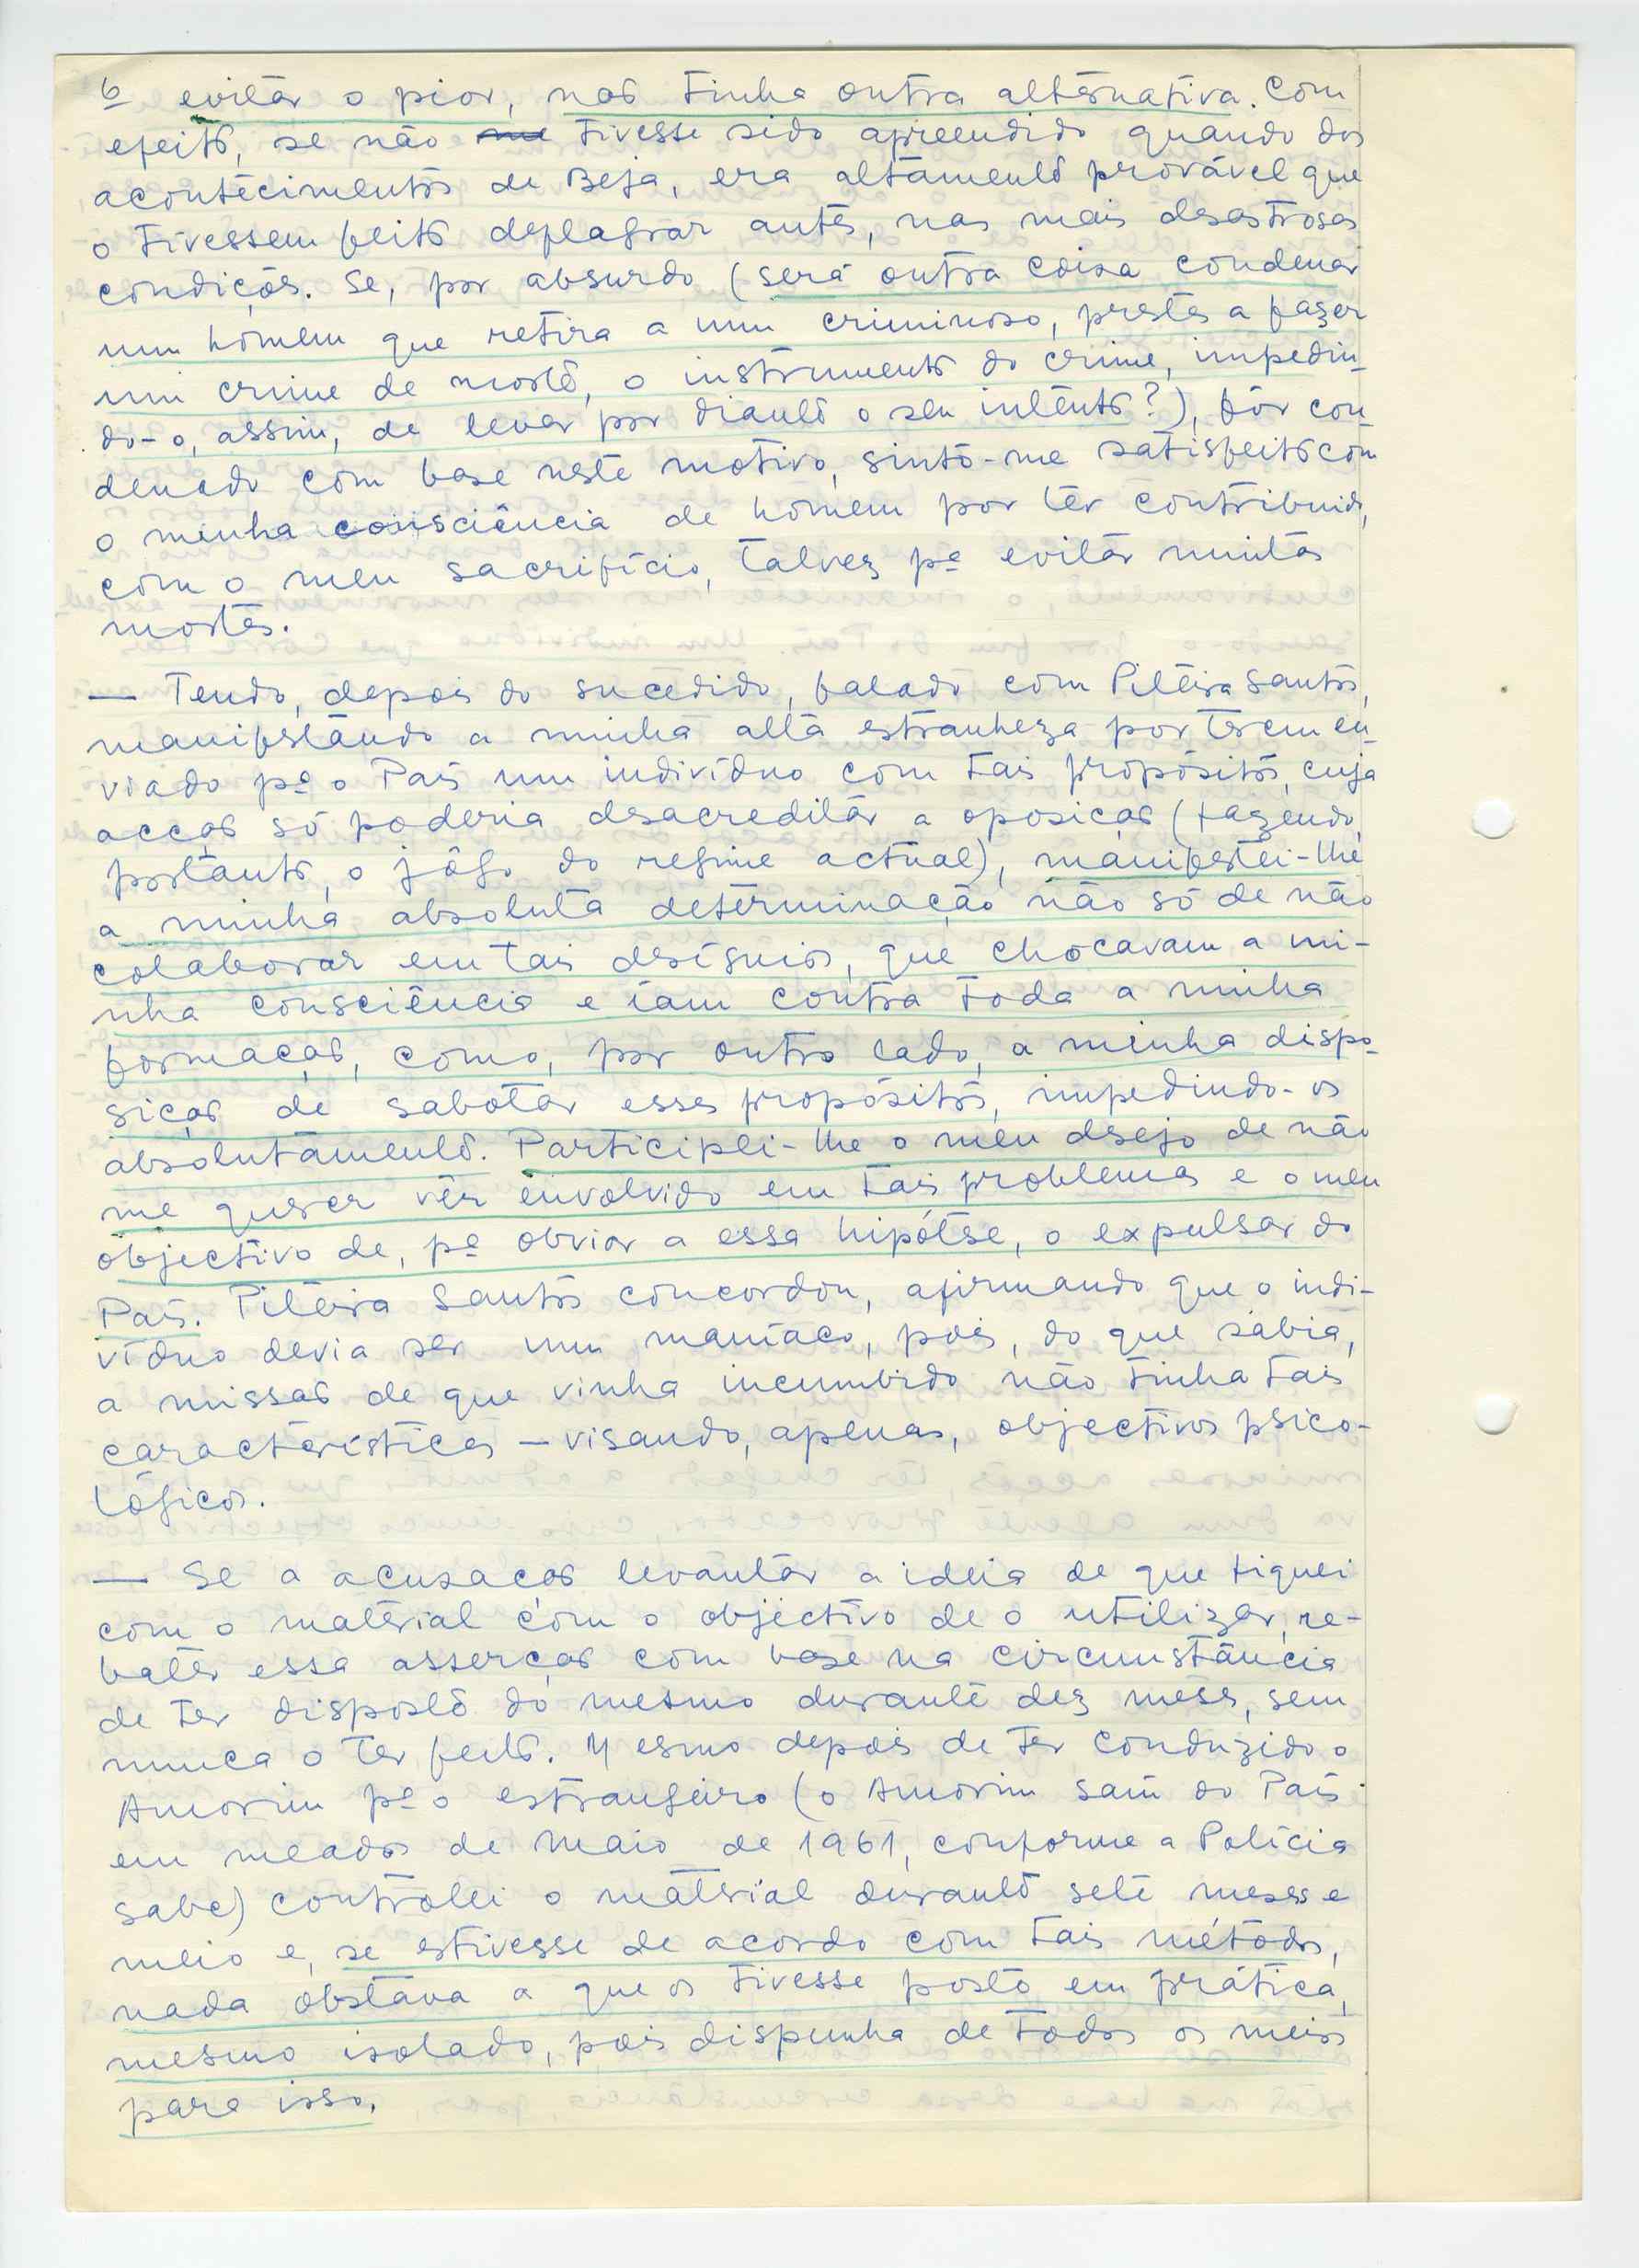 6 evitar o pior, não tinha outra alternativa. Com
efeito, se não me tivesse sido apreendido quando dos
acontecimentos de Beja, era altamente provável que
o tivessem feito deflagrar antes, nas mais desastrosas
condições. Se, por absurdo (será outra coisa condenar
um homem que retira a um criminoso, prestes a fazer
um crime de morte, o instrumento do crime, impedin-
do-o, assim, de levar por diante o seu intento?), fôr con-
denado com base neste motivo, sinto-me satisfeito com
a minha consciência de homem por ter contribuido,
com o meu sacrifício, talvez pª evitar muitas
mortes.
— Tendo, depois do sucedido, falado com Piteira Santos,
manifestando a minha alta estranheza por terem en-
viado pª o País um indivíduo com tais propósitos, cuja
acção só poderia desacreditar a oposição (fazendo,
portanto, o jôgo do regime actual), manifestei-lhe
a minha absoluta determinação não só de não
colaborar em tais desígnios, que chocavam a mi-
nha consciência e iam contra toda a minha
formação, como, por outro lado, a minha dispo-
sição de sabotar esses propósitos, impedindo-os
absolutamente. Participei-lhe o meu desejo de não
me querer vêr envolvido em tais problemas e o meu
objectivo de, pª obviar a essa hipótese, o expulsar do
País. Piteira Santos concordou, afirmando que o indi-
víduo devia ser um maníaco, pois, do que sabia,
a missão de que vinha incumbido não tinha tais
características — visando, apenas, objectivos psico-
lógicos.
— Se a acusação levantar a ideia de que fiquei
com o material com o objectivo de o utilizar, re-
bater essa asserção com base na circunstância
de ter disposto do mesmo durante dez meses, sem
nunca o ter feito. Mesmo depois de ter conduzido o
Amorim pª o estrangeiro (o Amorim saiu do País
em meados de Maio de 1961, conforme a Polícia
sabe) controlei o material durante sete meses e
meio e, se estivesse de acordo com tais métodos,
nada obstava a que os tivesse posto em prática,
mesmo isolado, pois dispunha de todos os meios
para isso.